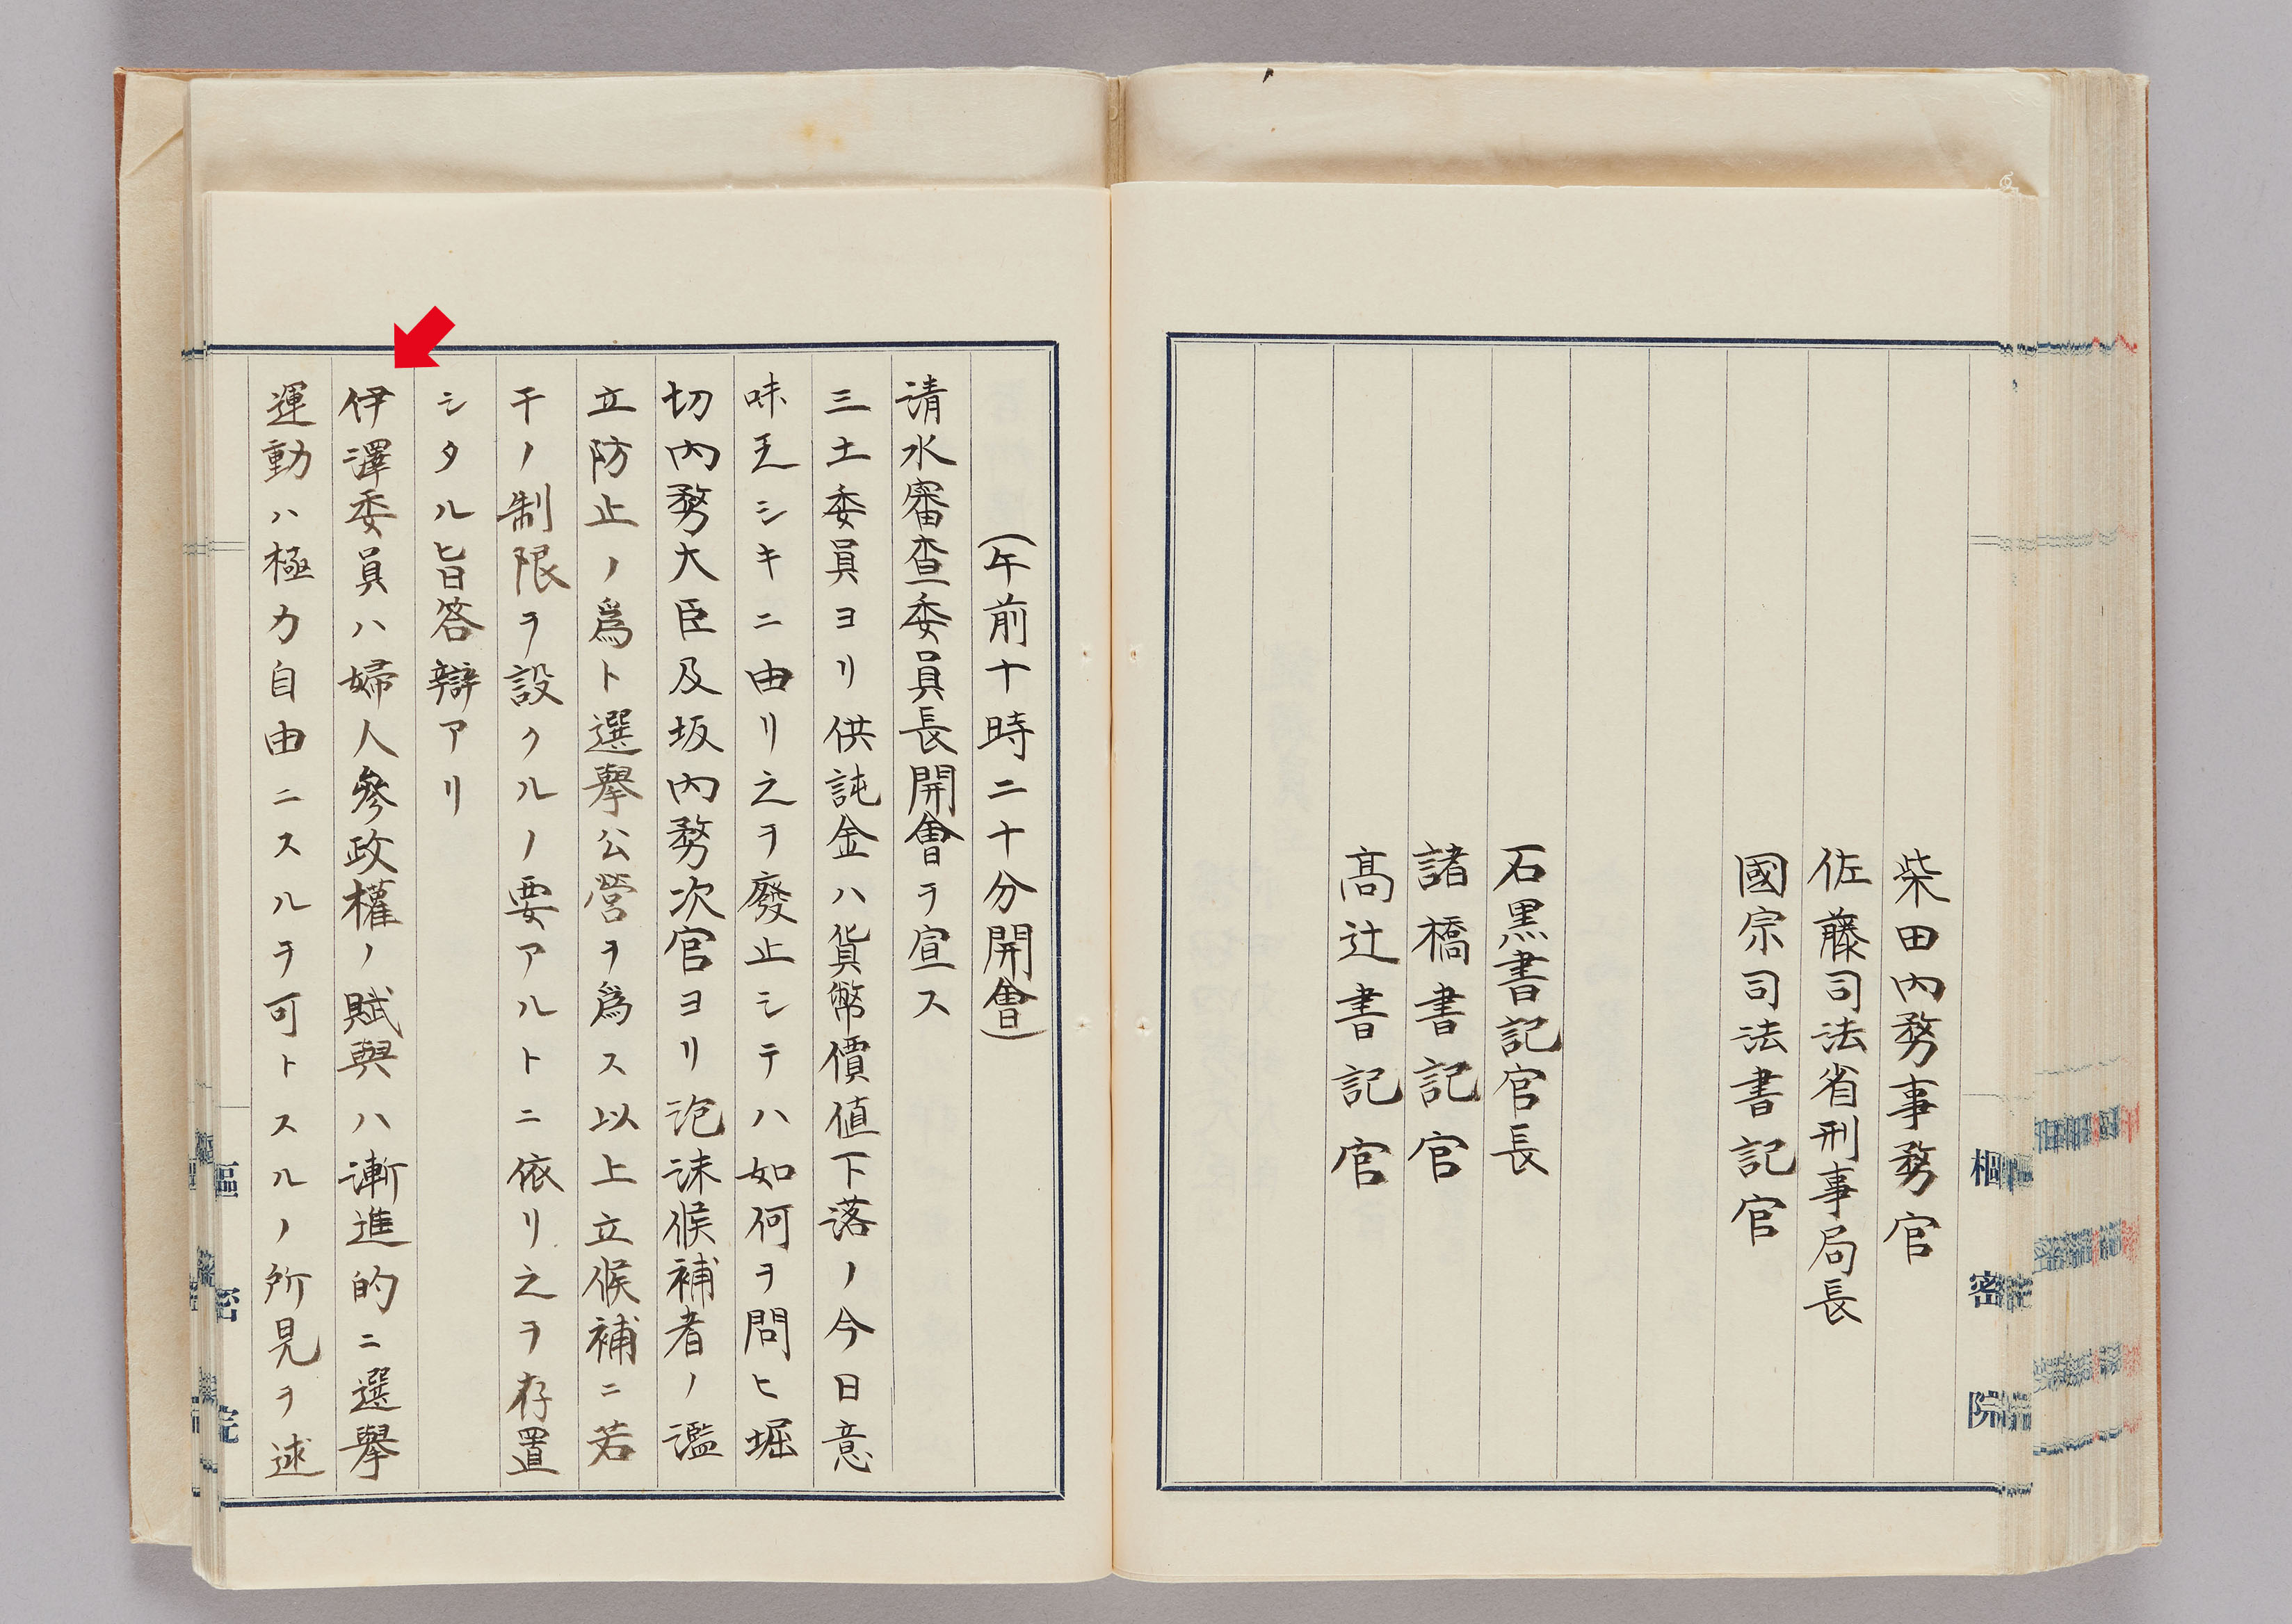 柴田内務事務官
佐藤司法省刑事局長
國宗司法書記官
石黒書記官長
諸橋書記官
高辻書記官
樞密院
（午前十時二十分開會）
清水審査委員長開會ヲ宣ス
三土委員ヨリ供託金ハ貨幣價値下落ノ今日意
味乏シキニ由リ之ヲ廢止シテハ如何ヲ問ヒ堀
切内務大臣及坂内務次官ヨリ泡沫候補者ノ濫
立防止ノ爲ト選擧公營ヲ爲ス以上立候補ニ若
干ノ制限ヲ設クルノ要アルトニ依リ之ヲ存置
シタル旨答辯アリ
伊澤委員ハ婦人參政權ノ賦與ハ漸進的ニ選擧
運動ハ極力自由ニスルヲ可トスルノ所見ヲ述